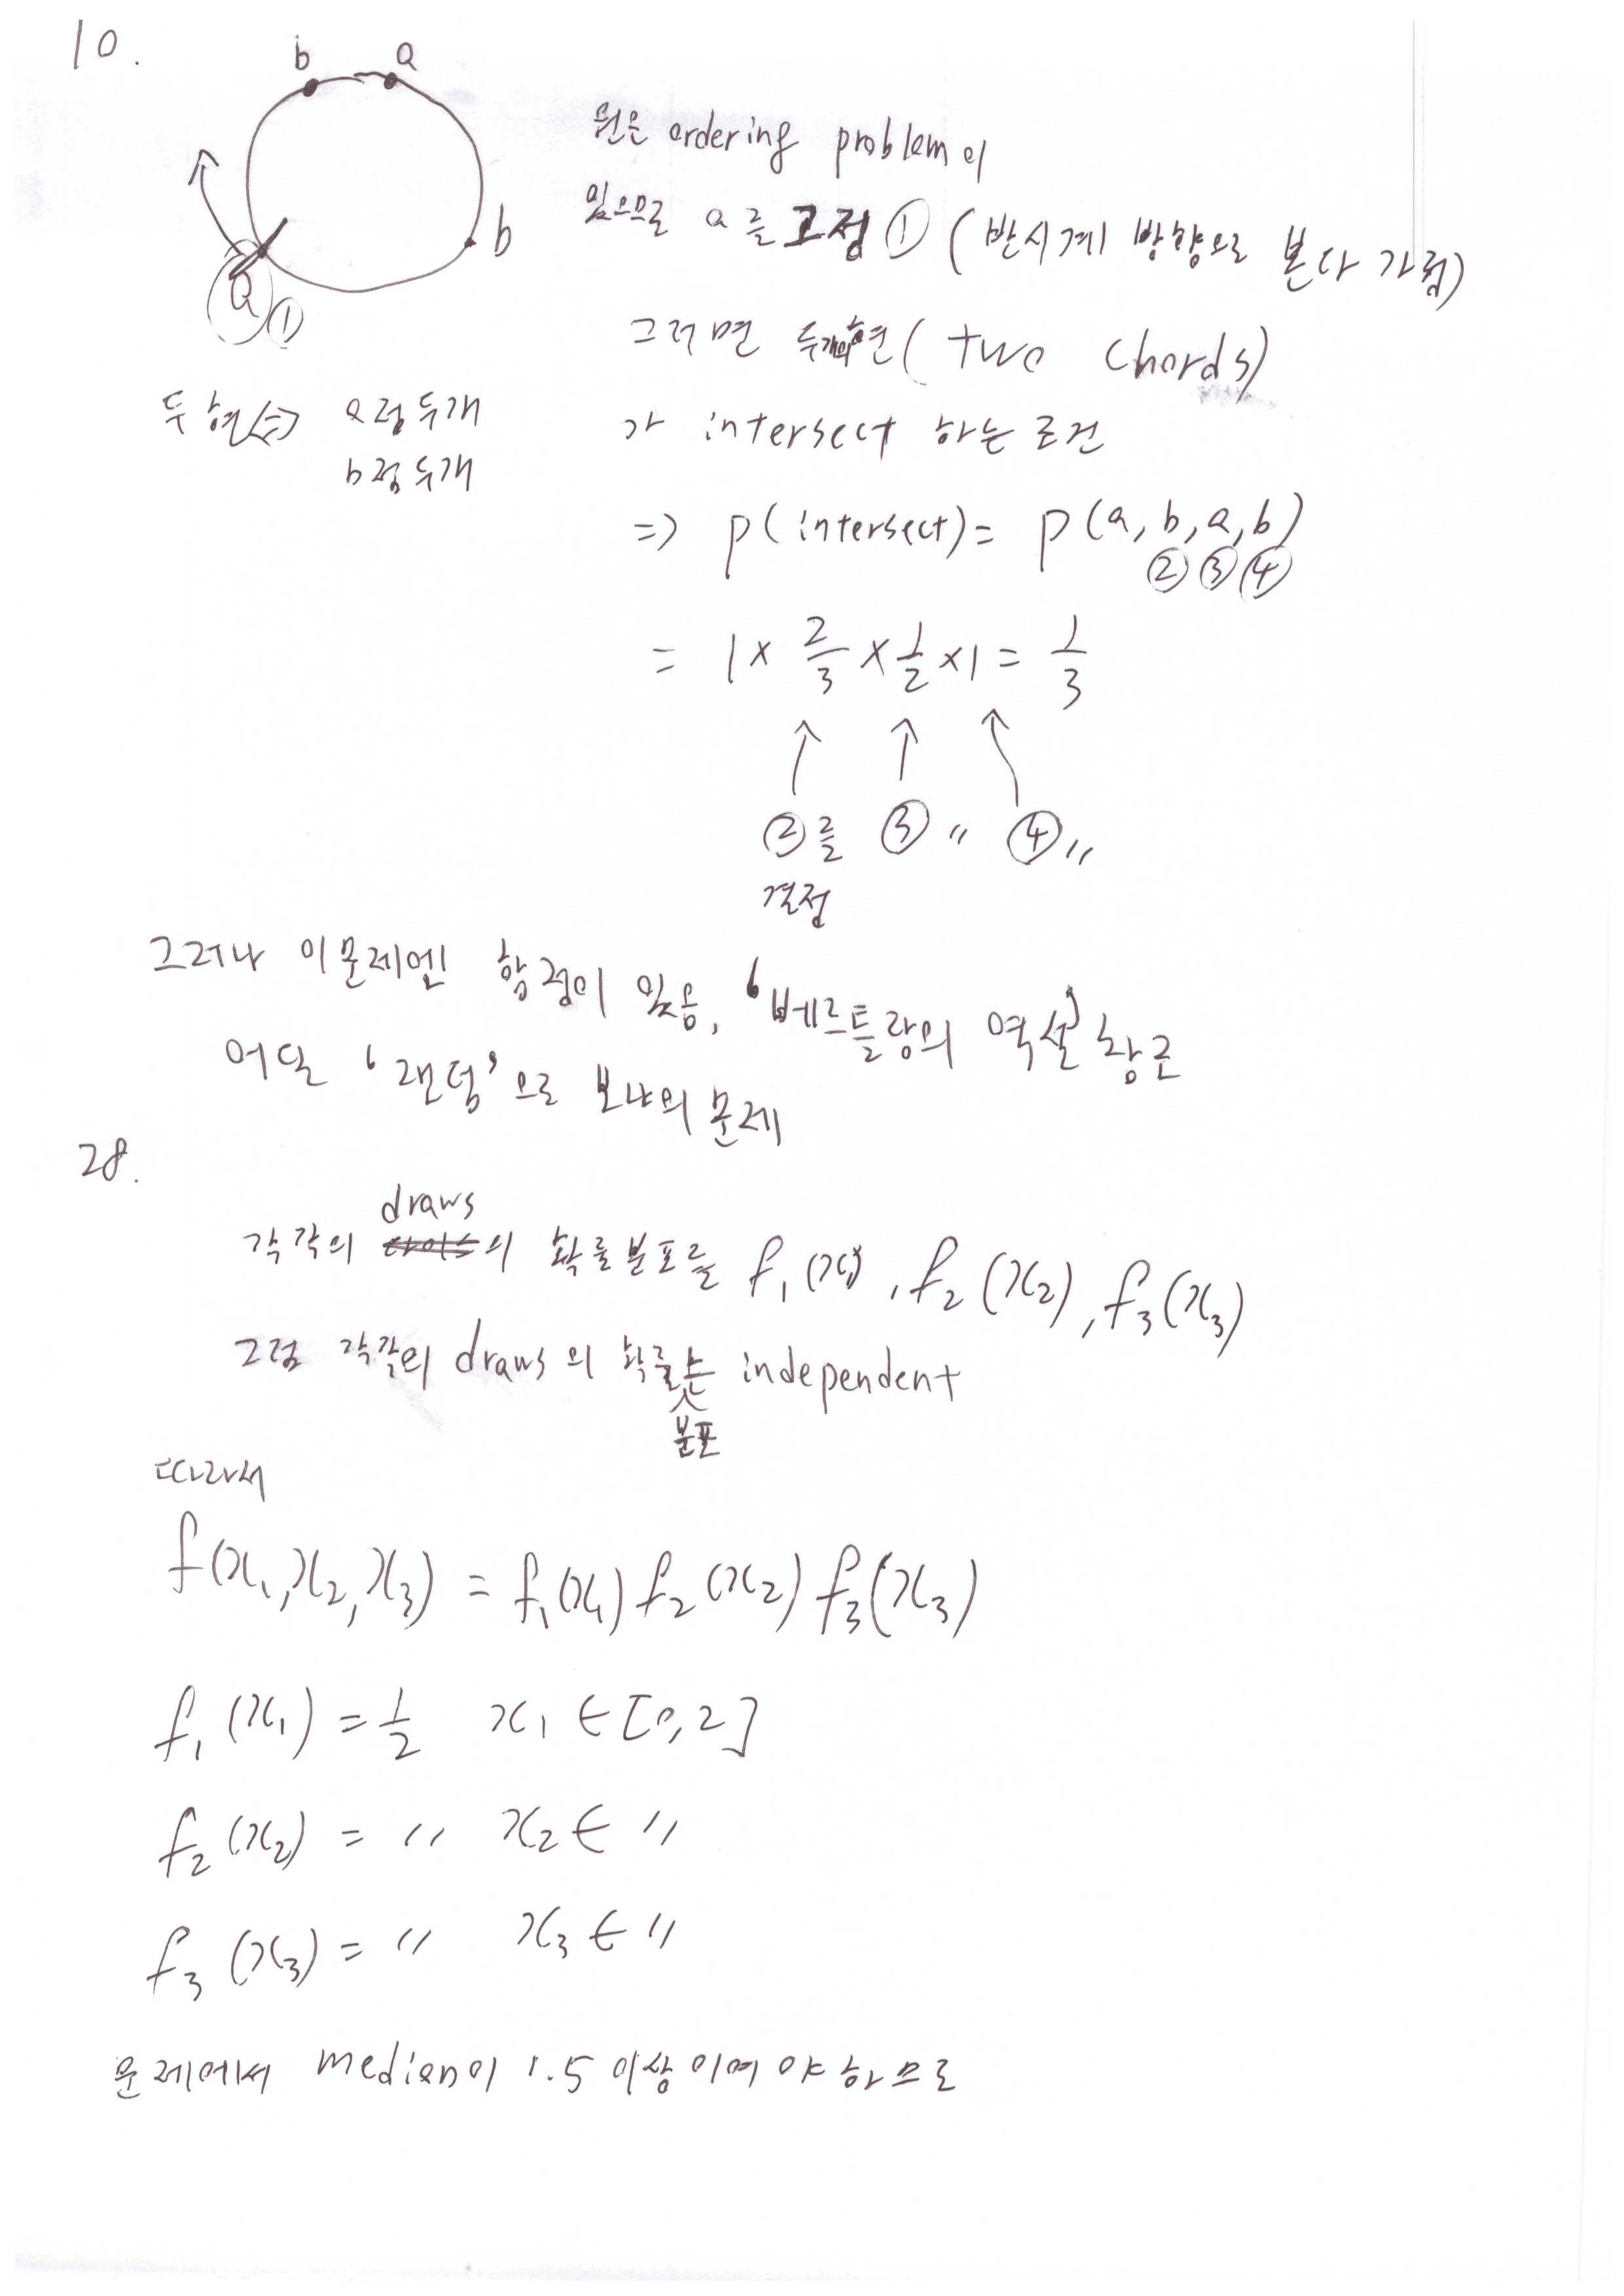 10.
b a
b
a ①
원은 ordering problem이
있으므로 a를 고정 ① (반시계 방향으로 본다 가정)
그러면 두개의 현 (two chords)
가 intersect 하는 조건
두 현 ⇔ a점 두개
b점 두개
=> P(intersect) = P(a, b, a, b)
② ③ ④
= 1 × 2/3 × 1/2 × 1 = 1/3
②를 ③ 〃 ④ 〃
결정
그러나 이 문제엔 함정이 있음, '베르트랑의 역설'
어딜 '랜덤'으로 보냐의 문제
28.
각각의 draws의 확률분포를 f₁(x₁), f₂(x₂), f₃(x₃)
그럼 각각의 draws의 확률분포는 independent
따라서
f(x₁, x₂, x₃) = f₁(x₁) f₂(x₂) f₃(x₃)
f₁(x₁) = 1/2 x₁ ∈ [0, 2]
f₂(x₂) = 〃 x₂ ∈ 〃
f₃(x₃) = 〃 x₃ ∈ 〃
문제에서 median이 1.5 이상이여야 하므로